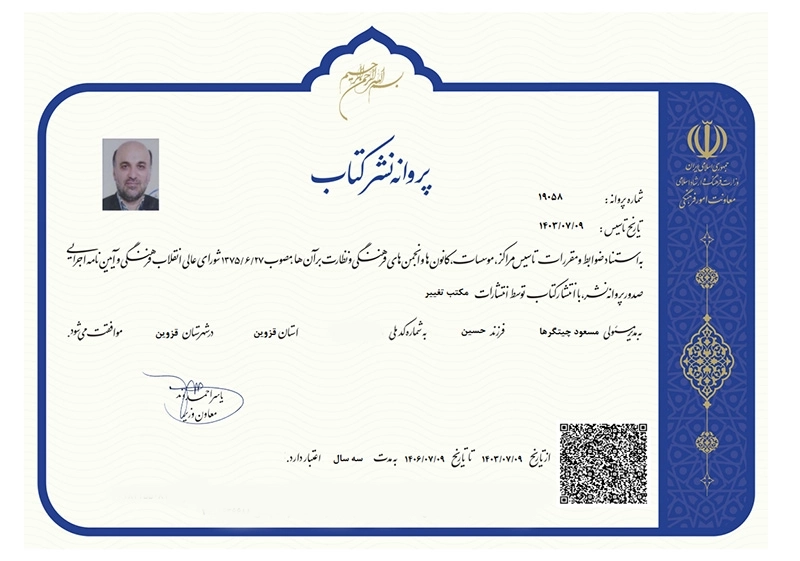 بسم الله الرحمن الرحیم
جمهوری اسلامی ایران
وزارت فرهنگ و ارشاد اسلامی
معاونت امور فرهنگی
پروانه نشر کتاب
شماره پروانه: ۱۹۰۵۸
تاریخ تاسیس: ۱۴۰۳/۰۷/۰۹
به استناد ضوابط و مقررات تاسیس مراکز، موسسات، کانون ها و انجمن های فرهنگی و نظارت بر آن ها، مصوب ۱۳۷۵/۶/۲۷ شورای عالی انقلاب فرهنگی و آیین نامه اجرایی
صدور پروانه نشر، با انتشار کتاب توسط انتشارات مکتب تغییر
به مدیر مسئولی مسعود چیتگرها فرزند حسین به شماره کد ملی استان قزوین در شهرستان قزوین موافقت می شود.
یاسر احمدوند
معاون وزیر
از تاریخ ۱۴۰۳/۰۷/۰۹ تا تاریخ ۱۴۰۶/۰۷/۰۹ به مدت سه سال اعتبار دارد.